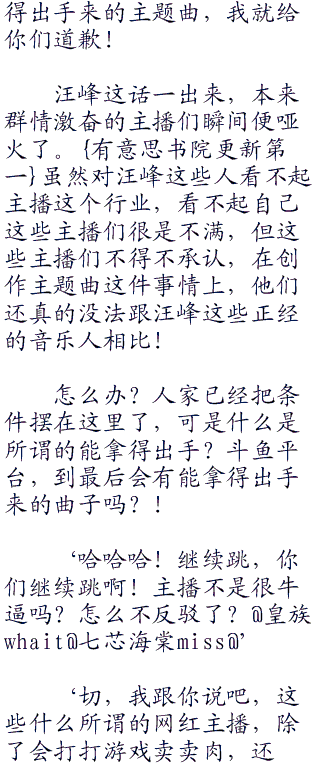 得出手来的主题曲，我就给
你们道歉！
汪峰这话一出来，本来
群情激奋的主播们瞬间便哑
火了。{有意思书院更新第
一}虽然对汪峰这些人看不起
主播这个行业，看不起自己
这些主播们很是不满，但这
些主播们不得不承认，在创
作主题曲这件事情上，他们
还真的没法跟汪峰这些正经
的音乐人相比！
怎么办？人家已经把条
件摆在这里了，可是什么是
所谓的能拿得出手？斗鱼平
台，到最后会有能拿得出手
来的曲子吗？！
‘哈哈哈！继续跳，你
们继续跳啊！主播不是很牛
逼吗？怎么不反驳了？@皇族
whait@七芯海棠miss@’
‘切，我跟你说吧，这
些什么所谓的网红主播，除
了会打打游戏卖卖肉，还